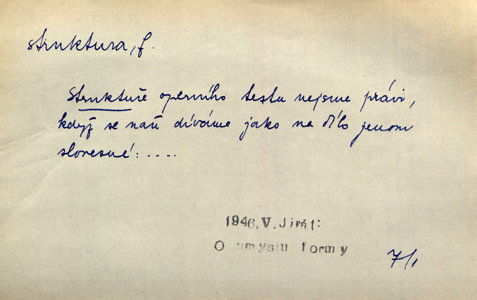 struktura, f.
Struktuře operního textu nejsme právi,
když se naň díváme jako na dílo jenom
slovesné: ....
1946, V. Jirát:
O smyslu formy
7/1